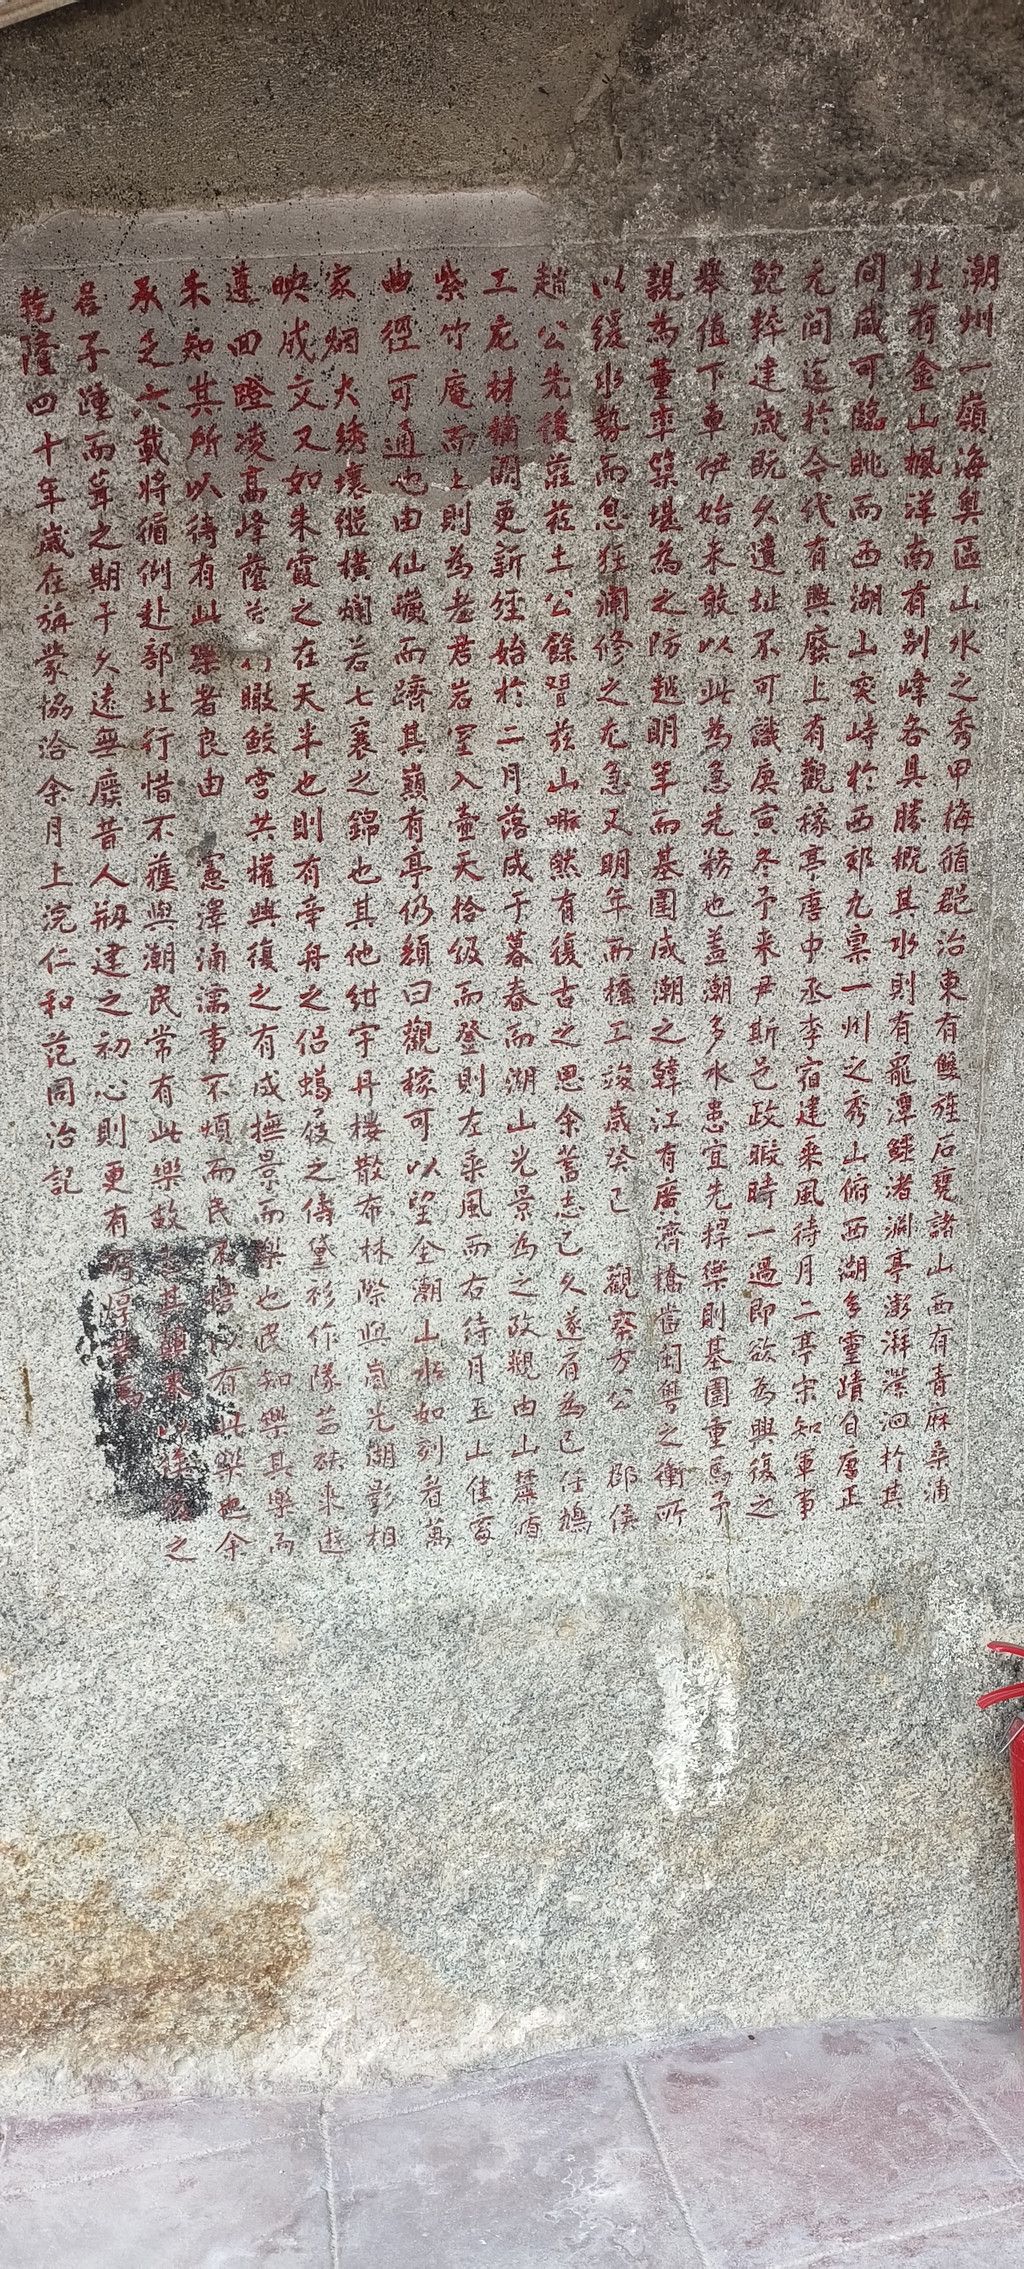 潮州一嶺海奧區山水之秀甲梅循郡治東有雙旌石甕諸山西有青麻桑浦
北有金山楓洋南有别峰各具勝概其水則有鼍潭鱷渚瀾亭澎湃瀠洄於其
間咸可臨眺而西湖山突峙於西郊尤禀一州之秀山俯西湖多靈蹟自唐正
元間迄於今代有興廢上有觀稼亭唐中丞李宿建乘風待月二亭宋知軍事
鮑粹建歲既久遺址不可識庚寅冬予来尹斯邑政暇時一過即欲為興復之
舉值下車伊始未敢以此為急先務也盖潮多水患宜先捍禦則基圍重焉予
親為董率築堪為之防越明年而基圍成潮之韓江有廣濟橋當閩粤之衝所
以緩水勢而息狂瀾修之尤急又明年而橋工竣歲癸巳 觀察方公 郡侯
趙公先後蒞茲土公餘習茲山喟然有復古之思余蓄志已久遂有為己任鳩
工庀材補闕更新经始於二月落成于暮春而湖山光景為之改觀由山麓循
紫竹庵而上則為老君岩室入壷天拾级而登則左乘風而右待月玉山佳處
曲徑可通也由仙巇而躋其巔有亭仍顔曰觀稼可以望全潮山水如列眉萬
家烟火綉壤縱橫爛若七襄之錦也其他紺宇丹樓散布林際與嵐光湖影相
映成文又如朱霞之在天半也則有帝舟之侣蠟屐之儔黛衫作隊芸袂来遊
遵四瞪凌高峰蔭 瞰鮫宫共懽與復之有成撫景而樂也民知樂其樂而
未知其所以待有此樂者良由 憲澤涌濡事不煩而民 有此樂也余
承乏六載將循例赴部北行惜不獲與潮民常有此樂故 其顛末以俟後之
君子踵而葺之期于久遠無廢昔人剏建之初心則更有 焉
乾隆四十年歲在旃蒙協洽余月上浣仁和范同治記